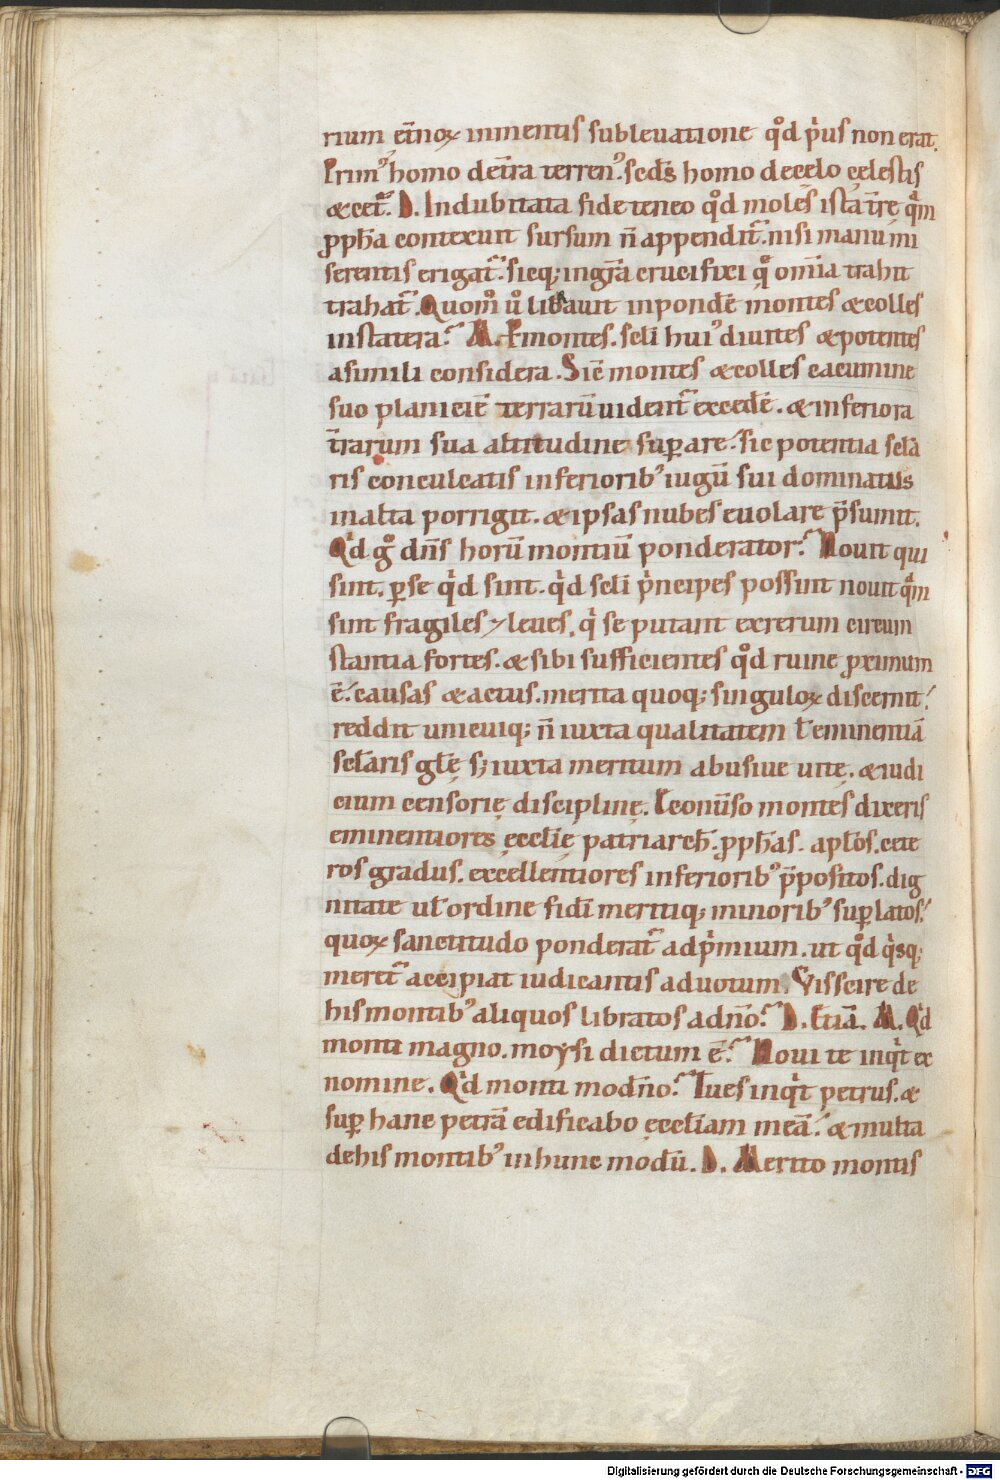 rium et̄noꝝ inmentis subleuatione qd̊ pi̇us non erat.
Prim᾿ homo det̄ra terren᾿. scd̄s homo decelo celestis
& cet̄. D. Indubitata fide teneo qd̊ molēs ista t̄re qᵃm
ꝓph̄a contexuit sursum n̄ appendit. nisi manu mi
serentis erigat᷑. sicq; ingr̄a crucifixi qᵒ om̄ia trahit
trahat᷑. Quom̊ u̇ librauit inpondē montes & colles
instatera? M. P montes. scl̄i hui᾿ diuites & potentes
asimili considera. Sic̄ montes & colles cacumine
suo planiciē terrarū uident᷑ excedē. & inferiora
t̄rarum sua altitudine suꝑare. sic potentia scl̄a
ris conculcatis inferiorib᾿ iugū sui dominatus
inalta porrigit. & ipsas nubes euolare p̄sumit.
Qi̇d gᵒ dn̄s horū montiū ponderator? Nouit qui
sint. ꝑ se qi̇d sint. qi̇d scl̄i pi̇ncipes possint nouit qᵃm
sint fragiles & leues. qi̇ se putant exrerum circum
stantia fortes. & sibi sufficientes qd̊ ruine proximum
ē. causas & actus. merita quoq; singuloꝝ discernit.
reddit unicuiq; n̄ iuxta qualitatem ł eminentiā
scl̄aris glē. s; iuxta meritum abusiue uitę. & iudi
cium censorię disciplinę. Econuso montes dixeris
eminentiores ęcclię patriarch̄. ꝓph̄as. apl̄os. cete
ros gradus. excellentiores inferiorib᾿ p̄positos. dig
nitate ut ordine fidi meritiq; minorib᾿ suꝑlatos.
quoꝝ sanctitudo ponderat᷑ adpi̇mium. ut qd̊ qi̇sq;
meret᷑ accipiat iudicantis aduotum. Vis scire de
his montib᾿ aliquos libratos adn̄o? D. Etiā. M. Qi̇d
monti magno. moysi dictum ē? Noui te inqi̇t ex
nomine. Qi̇d monti modn̄o? Tu es inqi̇t petrus. &
suꝑ hanc petrā edificabo ęccl̄iam meā. & multa
dehis montib᾿ inhunc modū. D. Merito montis
Digitalisierung gefördert durch die Deutsche Forschungsgemeinschaft - DFG